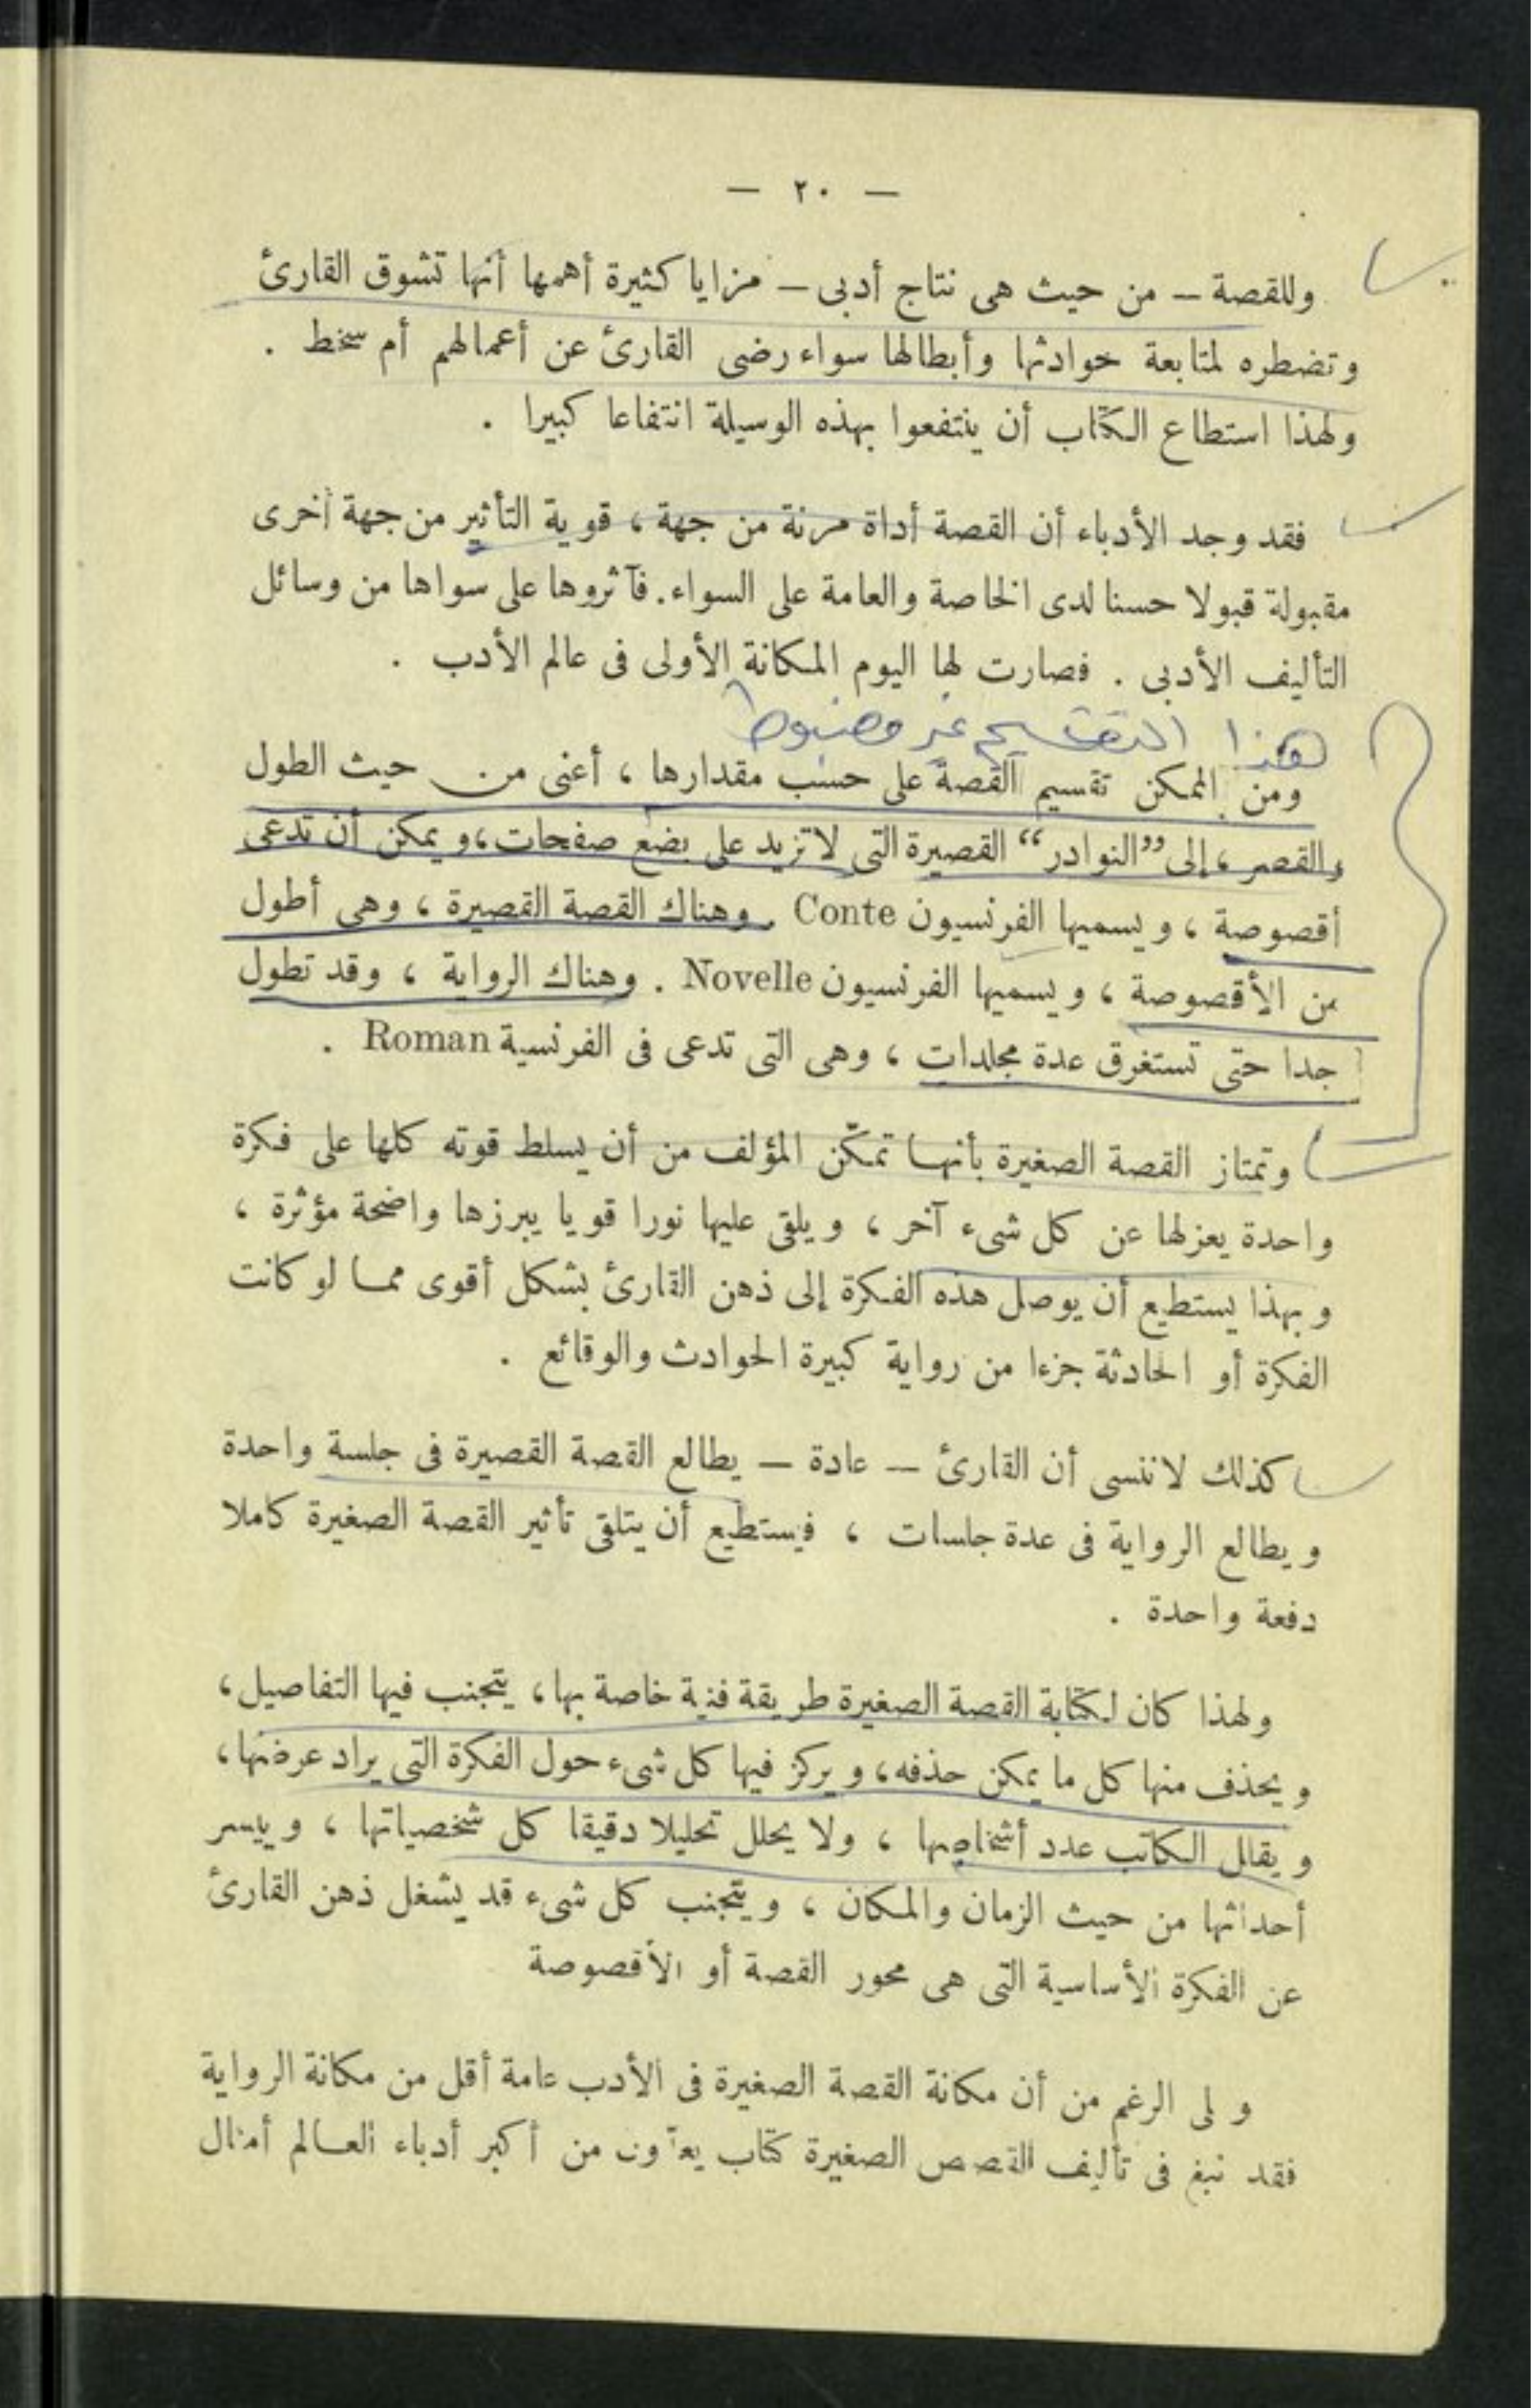 — ٢٠ —
وللقصة — من حيث هى نتاج أدبى — مزايا كثيرة أهمها أنها تشوق القارئ
وتضطره لمتابعة حوادثها وأبطالها سواء رضى القارئ عن أعمالهم أم سخط .
ولهذا استطاع الكتّاب أن ينتفعوا بهذه الوسيلة انتفاعا كبيرا .
فقد وجد الأدباء أن القصة أداة مرنة من جهة ، قوية التأثير من جهة أخرى
مقبولة قبولا حسنا لدى الخاصة والعامة على السواء . فآثروها على سواها من وسائل
التأليف الأدبى . فصارت لها اليوم المكانة الأولى فى عالم الأدب .
هذا التقسيم غير مضبوط
ومن الممكن تقسيم القصة على حسب مقدارها ، أعنى من حيث الطول
والقصر ، إلى ”النوادر“ القصيرة التى لا تزيد على بضع صفحات ، ويمكن أن تدعى
أقصوصة ، ويسميها الفرنسيون Conte . وهناك القصة القصيرة ، وهى أطول
من الأقصوصة ، ويسميها الفرنسيون Novelle . وهناك الرواية ، وقد تطول
جدا حتى تستغرق عدة مجلدات ، وهى التى تدعى فى الفرنسية Roman .
وتمتاز القصة الصغيرة بأنها تمكّن المؤلف من أن يسلط قوته كلها على فكرة
واحدة يعزلها عن كل شىء آخر ، ويلقى عليها نورا قويا يبرزها واضحة مؤثرة ،
وبهذا يستطيع أن يوصل هذه الفكرة إلى ذهن القارئ بشكل أقوى مما لو كانت
الفكرة أو الحادثة جزءا من رواية كبيرة الحوادث والوقائع .
كذلك لا ننسى أن القارئ — عادة — يطالع القصة القصيرة فى جلسة واحدة
ويطالع الرواية فى عدة جلسات ، فيستطيع أن يتلقى تأثير القصة الصغيرة كاملا
دفعة واحدة .
ولهذا كان لكتابة القصة الصغيرة طريقة فنية خاصة بها ، يتجنب فيها التفاصيل ،
ويحذف منها كل ما يمكن حذفه ، ويركز فيها كل شىء حول الفكرة التى يراد عرضها ،
ويقلل الكاتب عدد أشخاصها ، ولا يحلل تحليلا دقيقا كل شخصياتها ، وييسر
أحداثها من حيث الزمان والمكان ، ويتجنب كل شىء قد يشغل ذهن القارئ
عن الفكرة الأساسية التى هى محور القصة أو الأقصوصة
و لى الرغم من أن مكانة القصة الصغيرة فى الأدب عامة أقل من مكانة الرواية
فقد نبغ فى تأليف القصص الصغيرة كتّاب يعدّون من أكبر أدباء العالم أمثال